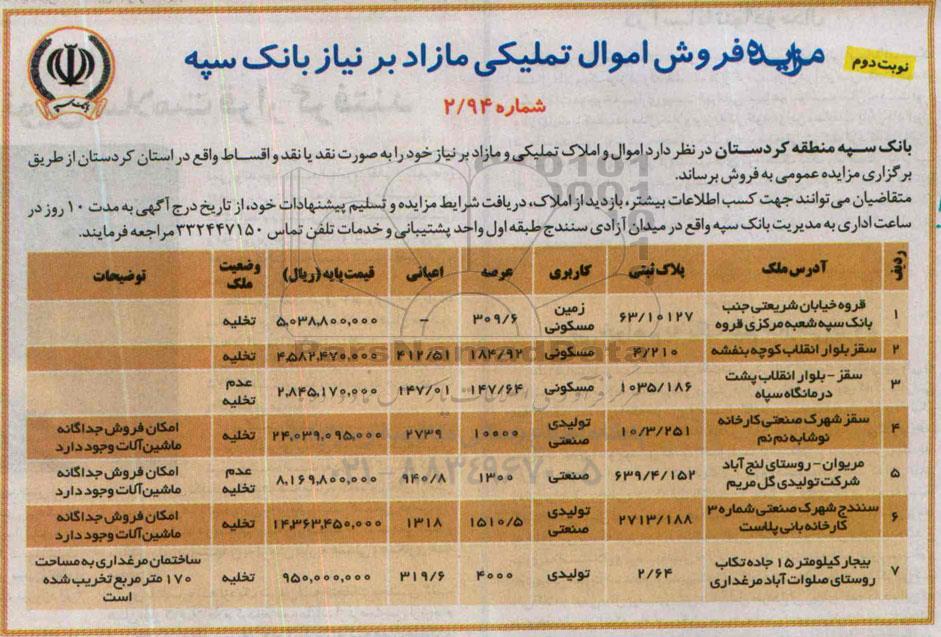 مزایده فروش اموال تملیکی مازاد بر نیاز بانک سپه
نوبت دوم
بانک سپه
شماره ۲/۹۴
بانک سپه منطقه کردستان در نظر دارد اموال و املاک تملیکی و مازاد بر نیاز خود را به صورت نقد یا نقد و اقساط واقع در استان کردستان از طریق
برگزاری مزایده عمومی به فروش برساند.
متقاضیان می توانند جهت کسب اطلاعات بیشتر، بازدید از املاک، دریافت شرایط مزایده و تسلیم پیشنهادات خود، از تاریخ درج آگهی به مدت ۱۰ روز در
ساعت اداری به مدیریت بانک سپه واقع در میدان آزادی سنندج طبقه اول واحد پشتیبانی و خدمات تلفن تماس ۳۳۲۴۴۷۱۵۰ مراجعه فرمایند.
ردیف آدرس ملک پلاک ثبتی کاربری عرصه اعیانی قیمت پایه (ریال) وضعیت ملک توضیحات
۱ قروه خیابان شریعتی جنب بانک سپه شعبه مرکزی قروه ۶۳/۱۰۱۲۷ زمین مسکونی ۳۰۹/۶ – ۵,۰۳۸,۸۰۰,۰۰۰ تخلیه
۲ سقز بلوار انقلاب کوچه بنفشه ۴/۲۱۰ مسکونی ۱۸۴/۹۲ ۴۱۲/۵۱ ۴,۵۸۲,۴۷۰,۰۰۰ تخلیه
۳ سقز – بلوار انقلاب پشت درمانگاه سپاه ۱۰۳۵/۱۸۶ مسکونی ۱۴۷/۶۴ ۱۴۷/۰۱ ۲,۸۴۵,۱۷۰,۰۰۰ عدم تخلیه
۴ سقز شهرک صنعتی کارخانه نوشابه نم نم ۱۰/۳/۲۵۱ تولیدی صنعتی ۱۰۰۰۰ ۲۷۳۹ ۲۴,۰۳۹,۰۹۵,۰۰۰ تخلیه امکان فروش جداگانه ماشین آلات وجود دارد
۵ مریوان – روستای لنج آباد شرکت تولیدی گل مریم ۶۳۹/۴/۱۵۲ صنعتی ۱۳۰۰ ۹۴۰/۸ ۸,۱۶۹,۸۰۰,۰۰۰ عدم تخلیه امکان فروش جداگانه ماشین آلات وجود دارد
۶ سنندج شهرک صنعتی شماره ۳ کارخانه بانی پلاست ۲۷۱۳/۱۸۸ تولیدی صنعتی ۱۵۱۰/۵ ۱۳۱۸ ۱۴,۳۶۳,۴۵۰,۰۰۰ تخلیه امکان فروش جداگانه ماشین آلات وجود دارد
۷ بیجار کیلومتر ۱۵ جاده تکاب روستای صلوات آباد مرغداری ۲/۶۴ تولیدی ۴۰۰۰ ۳۱۹/۶ ۹۵۰,۰۰۰,۰۰۰ تخلیه ساختمان مرغداری به مساحت ۱۷۰ متر مربع تخریب شده است